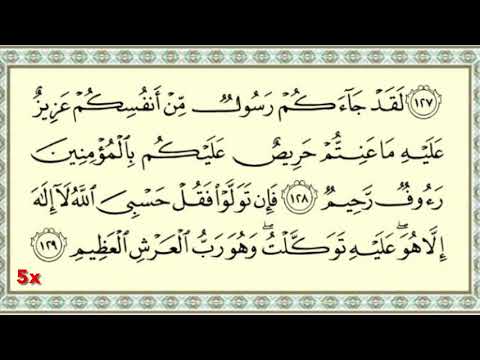 ١٢٧ لَقَدۡ جَآءَكُمۡ رَسُولٞ مِّنۡ أَنفُسِكُمۡ عَزِيزٌ
عَلَيۡهِ مَا عَنِتُّمۡ حَرِيصٌ عَلَيۡكُم بِٱلۡمُؤۡمِنِينَ
رَءُوفٞ رَّحِيمٞ ١٢٨ فَإِن تَوَلَّوۡاْ فَقُلۡ حَسۡبِيَ ٱللَّهُ لَآ إِلَٰهَ
إِلَّا هُوَۖ عَلَيۡهِ تَوَكَّلۡتُۖ وَهُوَ رَبُّ ٱلۡعَرۡشِ ٱلۡعَظِيمِ ١٢٩
5x